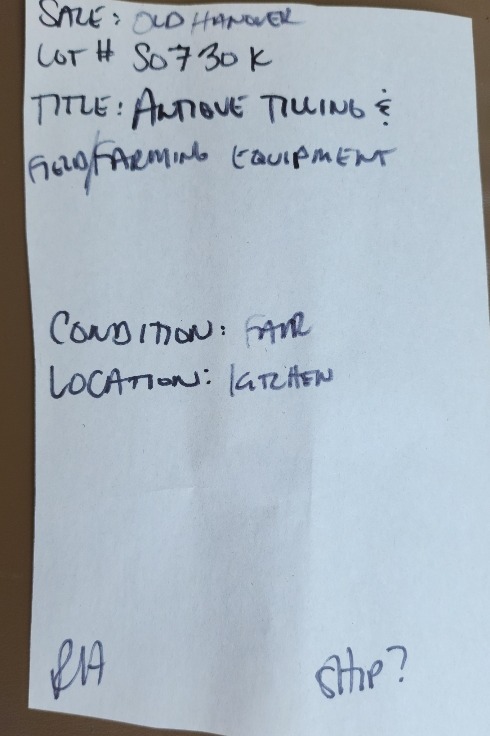 SALE: OLD HANOVER
LOT # S0730K
TITLE: ANTIQUE TILLING &
FIELD/FARMING EQUIPMENT
CONDITION: FAIR
LOCATION: KITCHEN
SHIP?